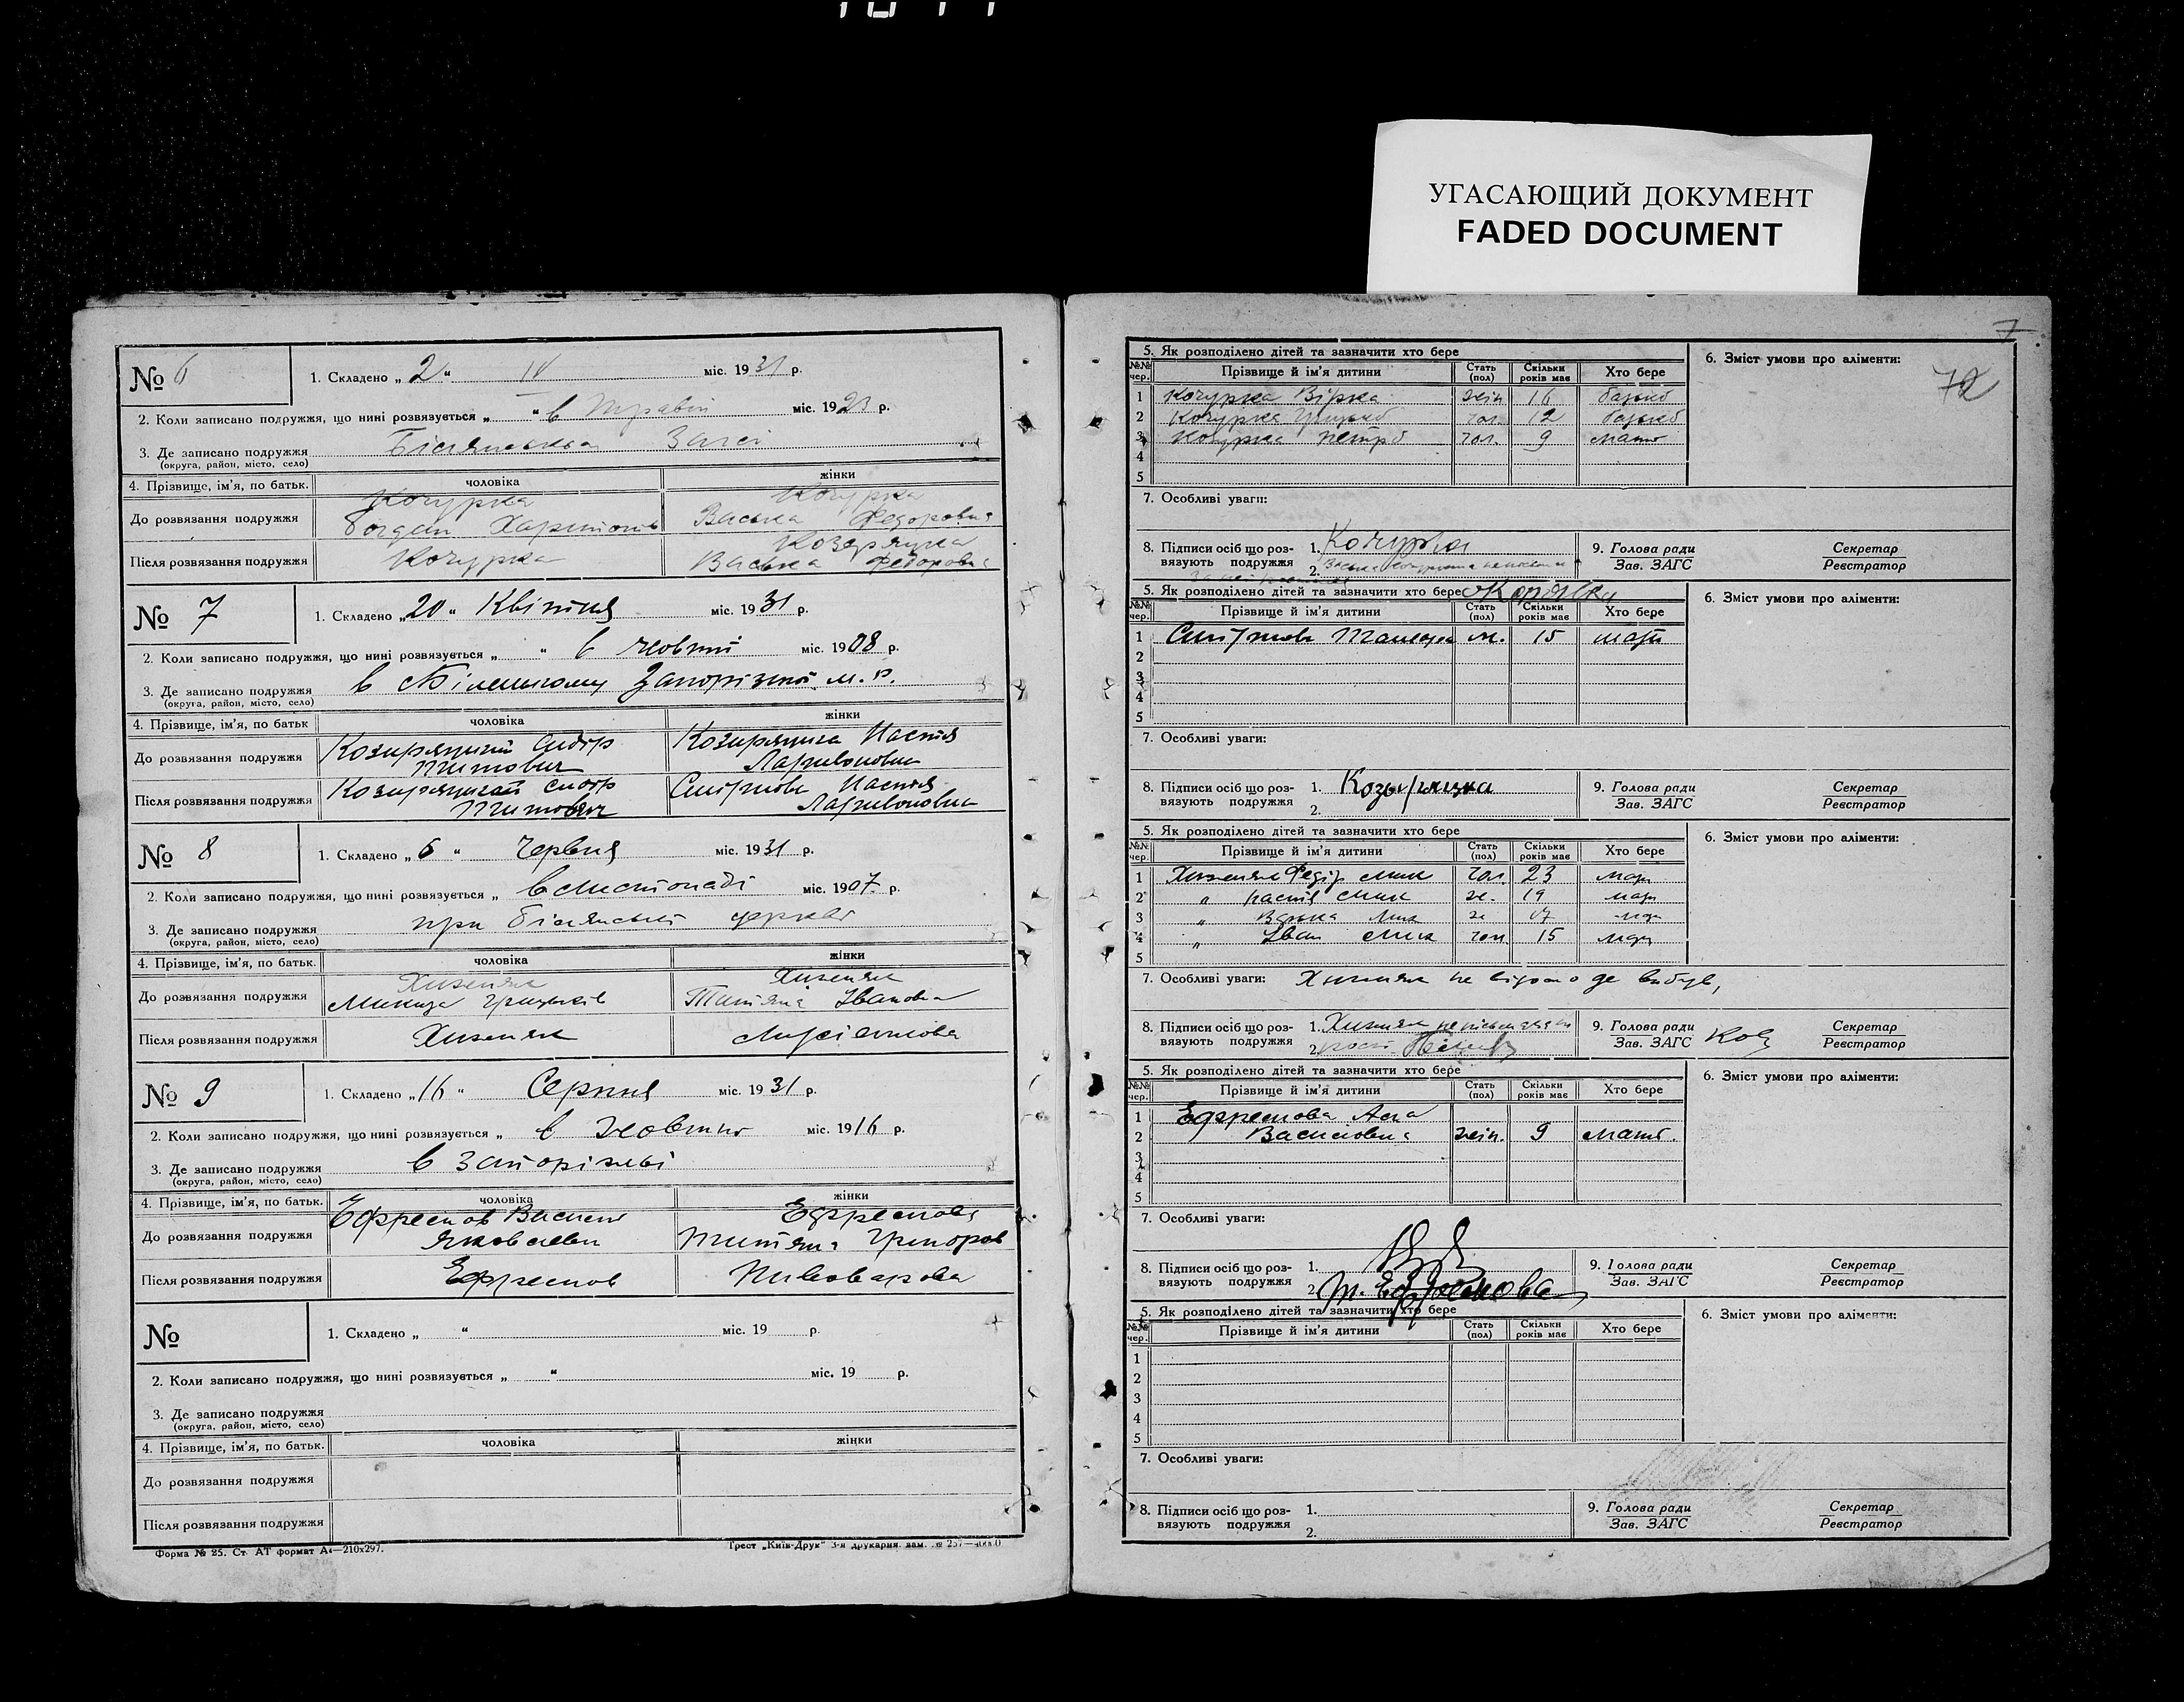 УГАСАЮЩИЙ ДОКУМЕНТ
FADED DOCUMENT
№ 6
1. Складено „ 2 “ IV міс. 1931 р.
2. Коли записано подружжя, що нині розвязується „ “ в міс. 192 р.
3. Де записано подружжя
(округа, район, місто, село)
4. Прізвище, ім'я, по батьк. чоловіка жінки
Кочурка Кочурка
До розвязання подружжя Богдан Васька Федоровна
Після розвязання подружжя Кочурка Васька Федоровна
№ 7
1. Складено „ 20 “ Квітня міс. 1931 р.
2. Коли записано подружжя, що нині розвязується „ “ в жовтні міс. 1908 р.
3. Де записано подружжя в
(округа, район, місто, село)
4. Прізвище, ім'я, по батьк чоловіка жінки
До розвязання подружжя Сидір Титович Настя Ларивоновна
Після розвязання подружжя Сидір Титович Настя Ларивоновна
№ 8
1. Складено „ 6 “ Червня міс. 1931 р.
2. Коли записано подружжя, що нині розвязується „ в листопаді міс. 1907 р.
3. Де записано подружжя при церкві
(округа, район, місто, село)
4. Прізвище, ім'я, по батьк. чоловіка жінки
Хижняк Хижняк
До розвязання подружжя Микита Татяна Івановна
Після розвязання подружжя Хижняк
№ 9
1. Складено „ 16 “ Серпня міс. 1931 р.
2. Коли записано подружжя, що нині розвязується „ в жовтні міс. 1916 р.
3. Де записано подружжя в Запоріжжі
(округа, район, місто, село)
4. Прізвище, ім'я, по батьк. чоловіка жінки
Ефремов Василь Ефремова
До розвязання подружжя Яковлевич Титяна Григоров
Після розвязання подружжя Ефремов Пивоварова
№
1. Складено „ “ міс. 19 р.
2. Коли записано подружжя, що нині розвязується „ “ міс. 19 р.
3. Де записано подружжя
(округа, район, місто, село)
4. Прізвище, ім'я, по батьк. чоловіка жінки
До розвязання подружжя
Після розвязання подружжя
Форма № 25. Ст. АТ формат А4—210х297.
Трест „Київ-Друк“ 3-я друкарня. зам. № 257—
7
72
5. Як розподілено дітей та зазначити хто бере
6. Зміст умови про аліменти:
№№ чер. Прізвище й ім'я дитини Стать (пол) Скільки років має Хто бере
1 Кочурка Вірка жін 16 батько
2 Кочурка Грицько чол. 12 батько
3 Кочурка Петро чол. 9 мати
4
5
7. Особливі уваги:
8. Підписи осіб що роз- 1. Кочурка 9. Голова ради Секретар
вязують подружжя 2. Зав. ЗАГС Реєстратор
5. Як розподілено дітей та зазначити хто бере
6. Зміст умови про аліменти:
№№ чер. Прізвище й ім'я дитини Стать (пол) Скільки років має Хто бере
1 15 мати
2
3
4
5
7. Особливі уваги:
8. Підписи осіб що роз- 1. 9. Голова ради Секретар
вязують подружжя 2. Зав. ЗАГС Реєстратор
5. Як розподілено дітей та зазначити хто бере
6. Зміст умови про аліменти:
№№ чер. Прізвище й ім'я дитини Стать (пол) Скільки років має Хто бере
1 Хижняк Федір Мик чол. 23 мати
2 „ Настя Мик ж. 19 мати
3 „ Мик ж 17 мати
4 „ Іван Мик чол 15 мати
5
7. Особливі уваги: Хижняк не відомо де вибув,
8. Підписи осіб що роз- 1. Хижняк 9. Голова ради Секретар
вязують подружжя 2. Зав. ЗАГС Реєстратор
5. Як розподілено дітей та зазначити хто бере
6. Зміст умови про аліменти:
№№ чер. Прізвище й ім'я дитини Стать (пол) Скільки років має Хто бере
1 Ефремова
2 Василовна жін. 9 мати.
3
4
5
7. Особливі уваги:
8. Підписи осіб що роз- 1. 9. Голова ради Секретар
вязують подружжя 2. Т. Ефремова Зав. ЗАГС Реєстратор
5. Як розподілено дітей та зазначити хто бере
6. Зміст умови про аліменти:
№№ чер. Прізвище й ім'я дитини Стать (пол) Скільки років має Хто бере
1
2
3
4
5
7. Особливі уваги:
8. Підписи осіб що роз- 1. 9. Голова ради Секретар
вязують подружжя 2. Зав. ЗАГС Реєстратор